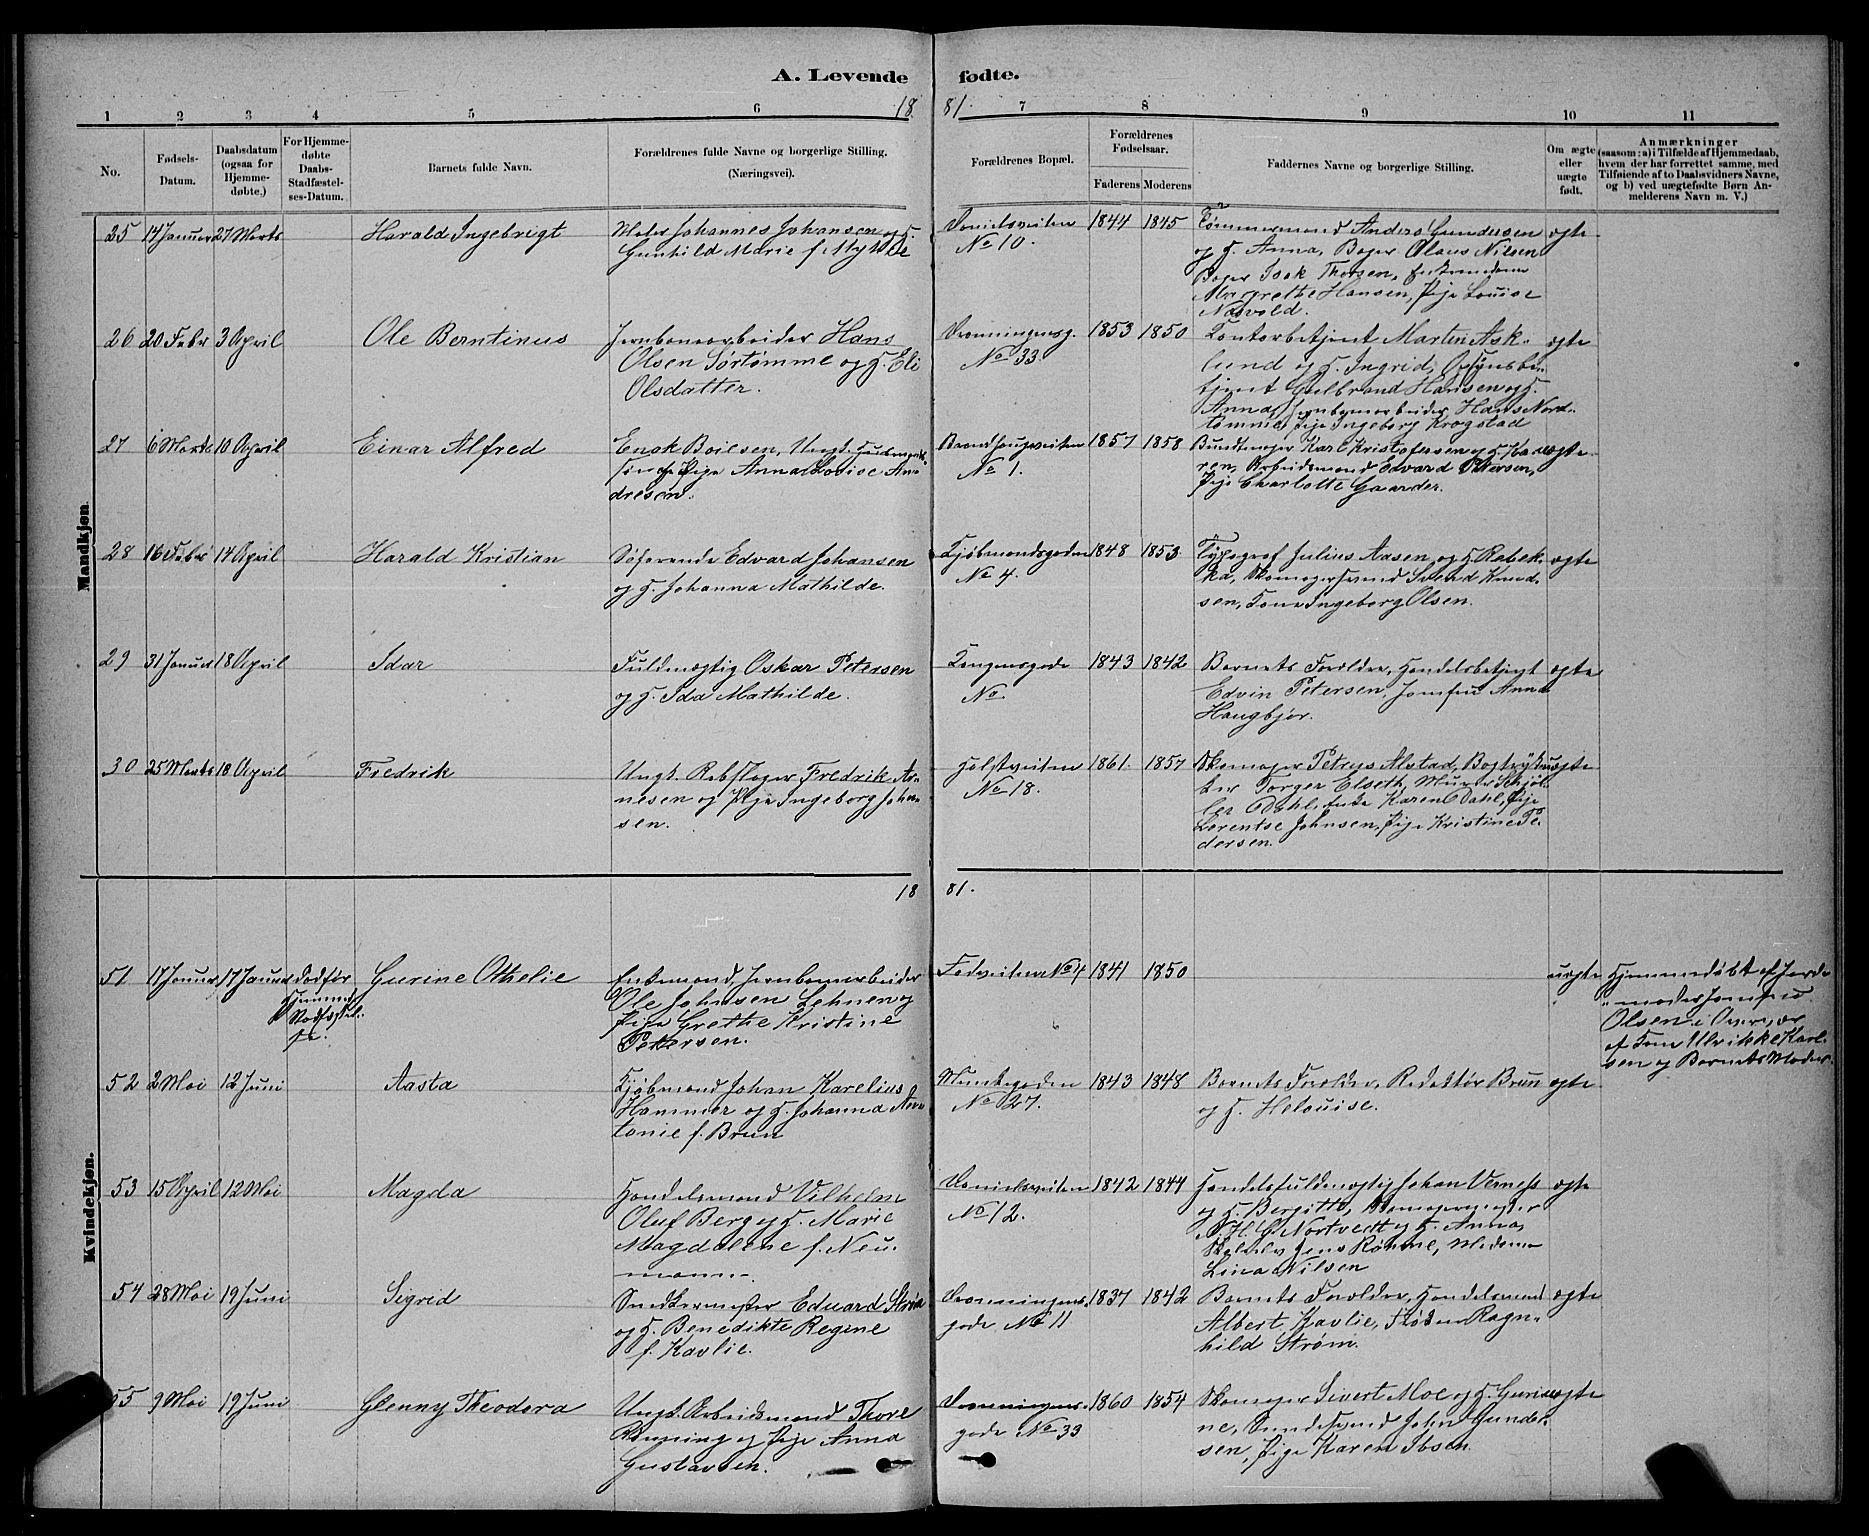 A. Levende fødte.
1881.
1 2 3 4 5 6 7 8 9 10 11
No.
Fødsels-Datum.
Daabsdatum (ogsaa for Hjemme-døbte.)
For Hjemme-døbte Daabs-Stadfæstel-ses-Datum.
Barnets fulde Navn.
Forældrenes fulde Navne og borgerlige Stilling.
(Næringsvei).
Forældrenes Bopæl.
Forældrenes Fødselsaar.
Faderens Moderens
Faddernes Navne og borgerlige Stilling.
Om ægte eller uægte født.
Anmærkninger
(saasom: a) i Tilfælde af Hjemmedaab,
hvem der har forrettet samme, med
Tilføiende af to Daabsvidners Navne,
og b) ved uægtefødte Børn An-
melderens Navn m. V.)
Mandkjøn.
25 14 Januar 27 Marts Harald Ingebrigt
Maler Johannes Johansen og H.
Gunhild Marie f. Mykle
No 10. 1844 1845
Tømmermand Anders Gundersen
og H. Anna, Bager Olaus Nilsen
Bager Isak Thorsen,
Margrethe Hansen, Pige Louise
Navold.
ægte
26 20 Febr 3 April Ole Berntinus
Jernbanearbeider Hans
Olsen Sørtømme og H. Eli
Olsdatter.
Dronningensg.
No 33 1853 1850
Kontorbetjent Martin Ask-
lund og H. Ingrid, Opsynsbe-
tjent Gulbrand Hansen og H.
Anna, Jernbanearbeider Hans Nord-
tømme, Pige Ingeborg Krogstad
ægte
27 6 Marts 10 April Einar Alfred
Enok Boiesen, Ungk.
og Pige Anna Lovise An-
dresen.
No 1. 1857 1858
Bundtmager Karl Kristofersen og H. Ka-
ren, Arbeidsmand Edvard Petersen,
Pige Charlotte Gaarder.
uægte
28 16 Febr 14 April Harald Kristian
Søfarende Edvard Johansen
og H. Johanna Mathilde.
Kjøbmandsgaden
No 4. 1848 1853
Typograf Julius Aasen og H. Rebek-
ka, Skomagersvend Svend Knud-
sen, Kone Ingeborg Olsen.
ægte
29 31 Januar 18 April Idar
Fuldmægtig Oskar Petersen
og H. Ida Mathilde.
Kongensgade
No 1843 1842
Barnets Forældre, Handelsbetjent
Edvin Petersen, Jomfru Anna
Haugbjør.
ægte
30 25 Marts 18 April Fredrik
Ungk. Rebslager Fredrik Ar-
nesen og Pige Ingeborg Johan-
sen.
Holstveiten
No 18. 1861 1857
Skomager Petrus Alstad, Bogtryk-
ker Torger Elseth, Murer
Dahl, Enke Karen Dahl, Pige
Lorentse Johnsen, Pige Kristine Pe-
dersen.
uægte
1881.
Kvindekjøn.
51 17 Januar 17 Januar Død før
Hjemmed.
Stadfæstel-
se.
Gurine Othelie
Enkemand, Jernbanearbeider
Ole Johnsen Lehnen og
Pige Grethe Kristine
Pettersen.
Fedveiten No 4 1841 1850
uægte
Hjemmedøbt af Jorde-
moder Jomfru
Olsen i Overvær
af Kone Ulrikke Karl-
sen og Barnets Moder.
52 2 Mai 12 Juni Aasta
Kjøbmand Johan Karelius
Hammer og H. Johanna An-
tonie f. Brun
Munkegaden
No 27. 1843 1848
Barnets Forældre, Redaktør Brun
og H. Helouise.
ægte
53 15 April 12 Mai Magda
Handelsmand Vilhelm
Oluf Berg og H. Marie
Magdalene f. Neu-
mann.
No 12. 1842 1844
Handelsfuldmægtig Johan Verness
og H. Bergitte, Skomagermester
H. C. Nortvedt og H. Anna,
Jens Rømme, Madam
Lina Nilsen
ægte
54 28 Mai 19 Juni Sigrid
Snedkermester Eduard Strøm
og H. Benedikte Regine
f. Kavlie.
Dronningens-
gade No 11 1837 1842
Barnets Forældre, Handelsmand
Albert Kavlie, Frøken Ragn-
hild Strøm.
ægte
55 9 Mai 19 Juni Glenny Theodora
Ungk. Arbeidsmand Thore
Rønning og Pige Anna
Gustavsen.
Dronningens-
gade No 33 1860 1854
Skomager Sivert Moe og H. Guri-
ne, Smedesvend John Gunder-
sen, Pige Karen Ibsen.
uægte